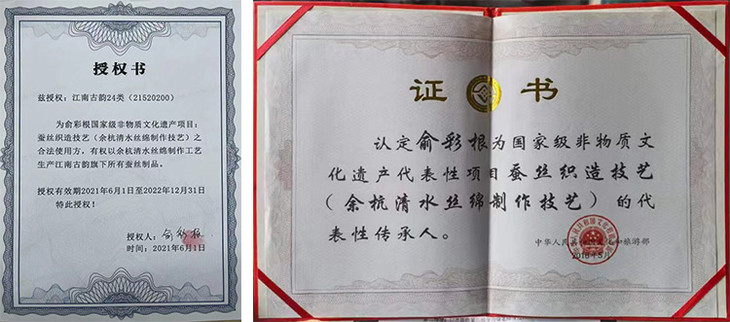 授权书
兹授权：江南古韵24类（21520200）
为俞彩根国家级非物质文化遗产项目：
蚕丝织造技艺（余杭清水丝绵制作技艺）之
合法使用方，有权以余杭清水丝绵制作工艺
生产江南古韵旗下所有蚕丝制品。
授权有效期2021年6月1日至2022年12月31日
特此授权！
授权人：俞彩根
时间：2021年6月1日
证书
认定俞彩根为国家级非物质文
化遗产代表性项目蚕丝织造技艺
（余杭清水丝绵制作技艺）的代
表性传承人。
中华人民共和国文化和旅游部
2018年5月